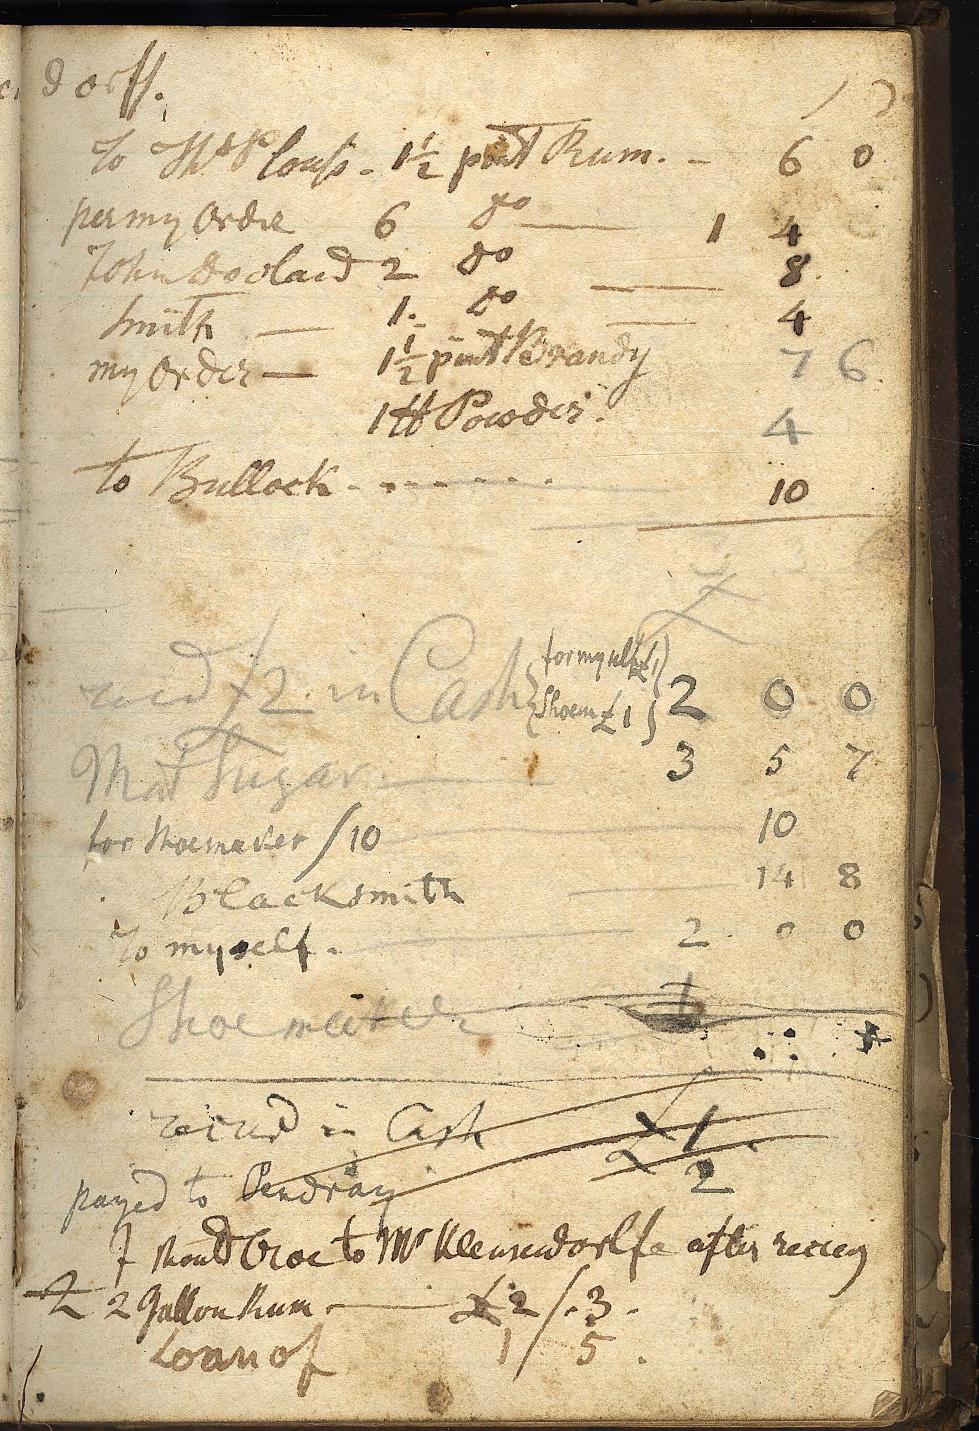 dorff.
To 1½ pint Rum. - 6 0
per my Order 6 do — 1 4
John 2 do — 8
Smith — 1. do — 4
my Order — 1½ pint Brandy 7 6
1 lb Powder. 4
to Bullock - - - - - - 10
£
recd £2 in Cash { for myself £1 } 2 0 0
{ Shoem £1 }
Sugar — 3 5 7
for Shoemaker /10 10
Blacksmith — 14 8
To myself. — 2 0 0
Shoemaker 1
recived in Cash £1
payed to Pendray 2
I to Mr after
2 Gallon Rum — £2/.3.
Loan of 1/5.